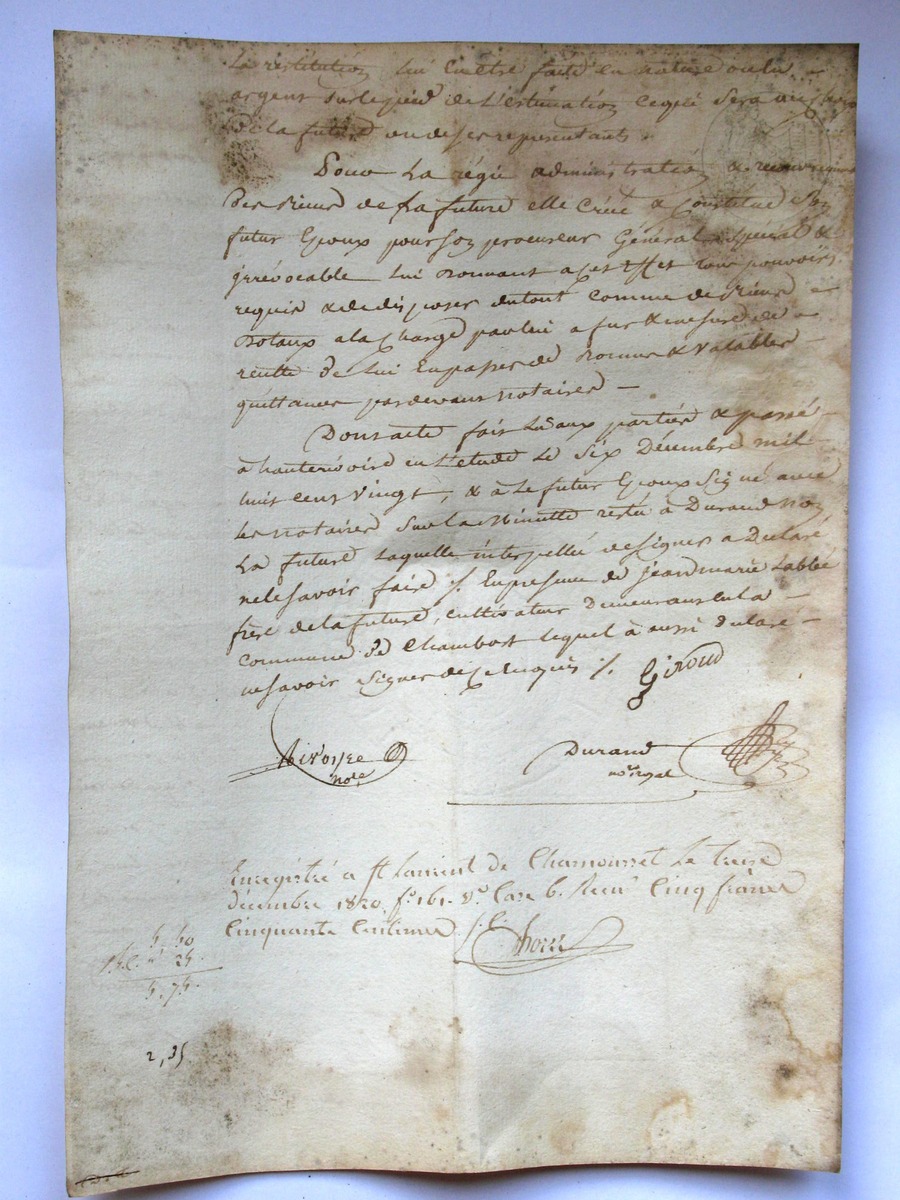 La restitution lui en être faite en nature ou en
argent sur le pied de l'estimation ce qui sera au choix
de la future ou de ses representants.
Pour la régie administration & recouvrement
des biens de la future elle crée & constitue son
futur Epoux pour son procureur Général, spécial &
irrévocable lui donnant a cet effet tous pouvoirs
requis & de disposer du tout comme de biens
dotaux a la charge par lui a fur & mesure de
recette de lui en passer de bonnes & valables
quittances pardevant notaires —
Dont acte fait lu aux parties & passé
à hauterivoire en l'etude le six Décembre mil
huit cent vingt, & à le futur Epoux signé avec
les notaires sur la Minutte resté à Durand non
la future laquelle interpellée de signer a declaré
ne le savoir faire ./. En presence de jean marie Labbé
frère de la future, cultivateur demeurant en la
commune de Chambost lequel à aussi declaré
ne savoir signer de ce enquis ./. Giroud
notre
Durand
nore royal
Enregistré a St Laurent de Chamousset Le treize
décembre 1820, fo. 161. Vo. Case 6. Recu Cinq francs
Cinquante Centimes
5, 50
25
5, 75.
2, 35